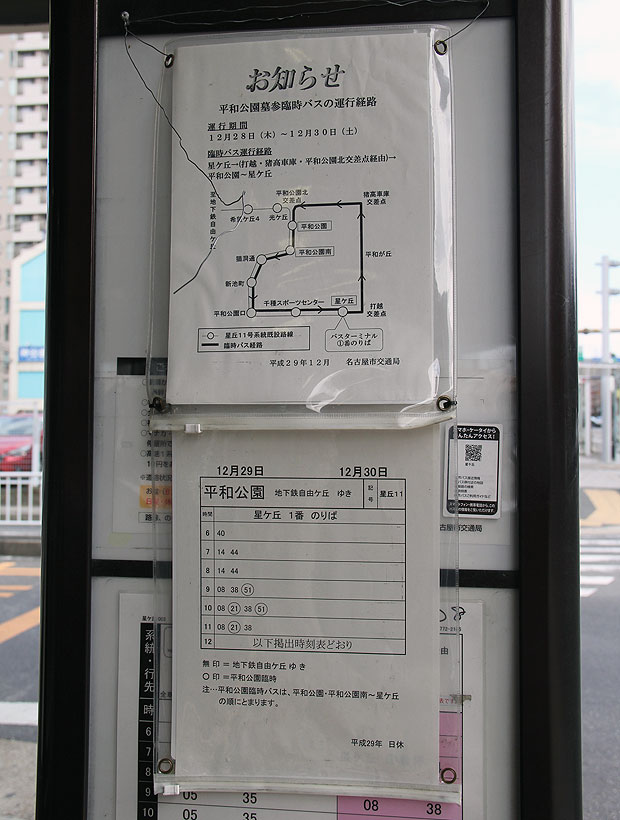 お知らせ
平和公園墓参臨時バスの運行経路
運行期間
12月28日(木)~12月30日(土)
臨時バス運行経路
星ケ丘→(打越・猪高車庫・平和公園北交差点経由)→
平和公園~星ケ丘
至地下鉄自由ケ丘
希望ケ丘4
光ケ丘
平和公園北
交差点
猪高車庫
交差点
平和公園
平和公園南
猫洞通
平和が丘
新池町
平和公園口
千種スポーツセンター
星ケ丘
打越
交差点
バスターミナル
①番のりば
星丘11号系統既設路線
臨時バス経路
平成29年12月 名古屋市交通局
12月29日 12月30日
平和公園 地下鉄自由ケ丘 ゆき 記号 星丘11
時間 星ケ丘 1番 のりば
6 40
7 14 44
8 14 44
9 08 38 51
10 08 21 38 51
11 08 21 38
12 以下掲出時刻表どおり
無印=地下鉄自由ケ丘 ゆき
○印=平和公園臨時
注…平和公園臨時バスは、平和公園・平和公園南~星ケ丘
の順にとまります。
平成29年 日休
マホ・ケータイから
んたんアクセス!
星ケ丘
古屋市交通局
系統・行先
時
6
7
8
9
10
05 35
08 38